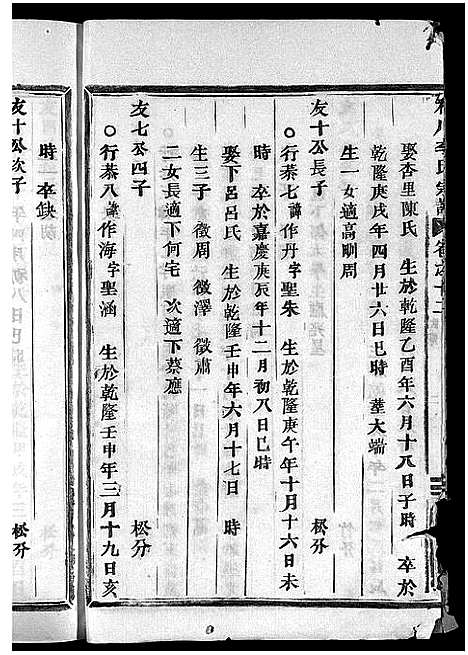 李氏宗譜 卷之十二
娶杏里陳氏 生於乾隆乙酉年六月十八日子時 卒於
乾隆庚戌年四月廿六日巳時 葬大端
生一女適高瞓周
友十公長子 松分
○行恭七諱作丹字聖朱 生於乾隆庚午年十月十六日未
時 卒於嘉慶庚辰年十二月初八日巳時
娶下呂呂氏 生於乾隆壬申年六月十七日 時
生三子 徵周 徵澤 徵肅
二女長適下何宅 次適下蔡應
友七公四子 松分
○行恭八諱作海字聖涵 生於乾隆壬申年三月十九日亥
時 卒缺
友十公次子 松分